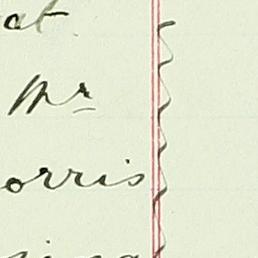 at
Mr
orris